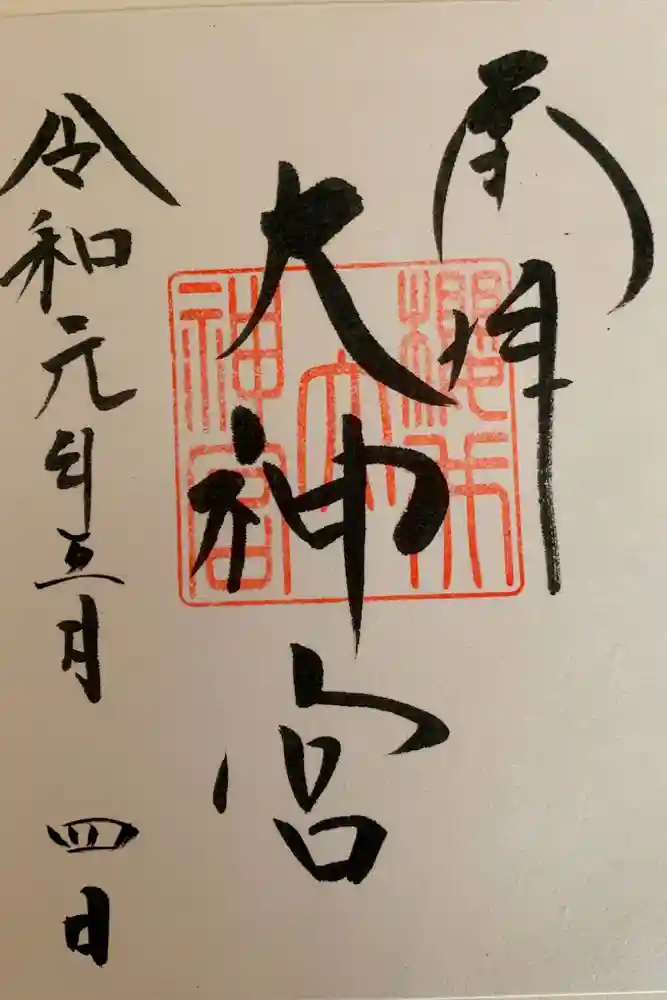 奉拝
大神宮
令和元年五月四日
櫻木
大
神宮